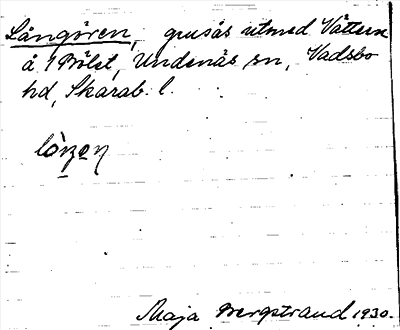 Långören, grusås utmed Vättern
å Bölet, Undenäs sn, Vadsbo
hd, Skarab. l.
Maja Bergstrand 1930.